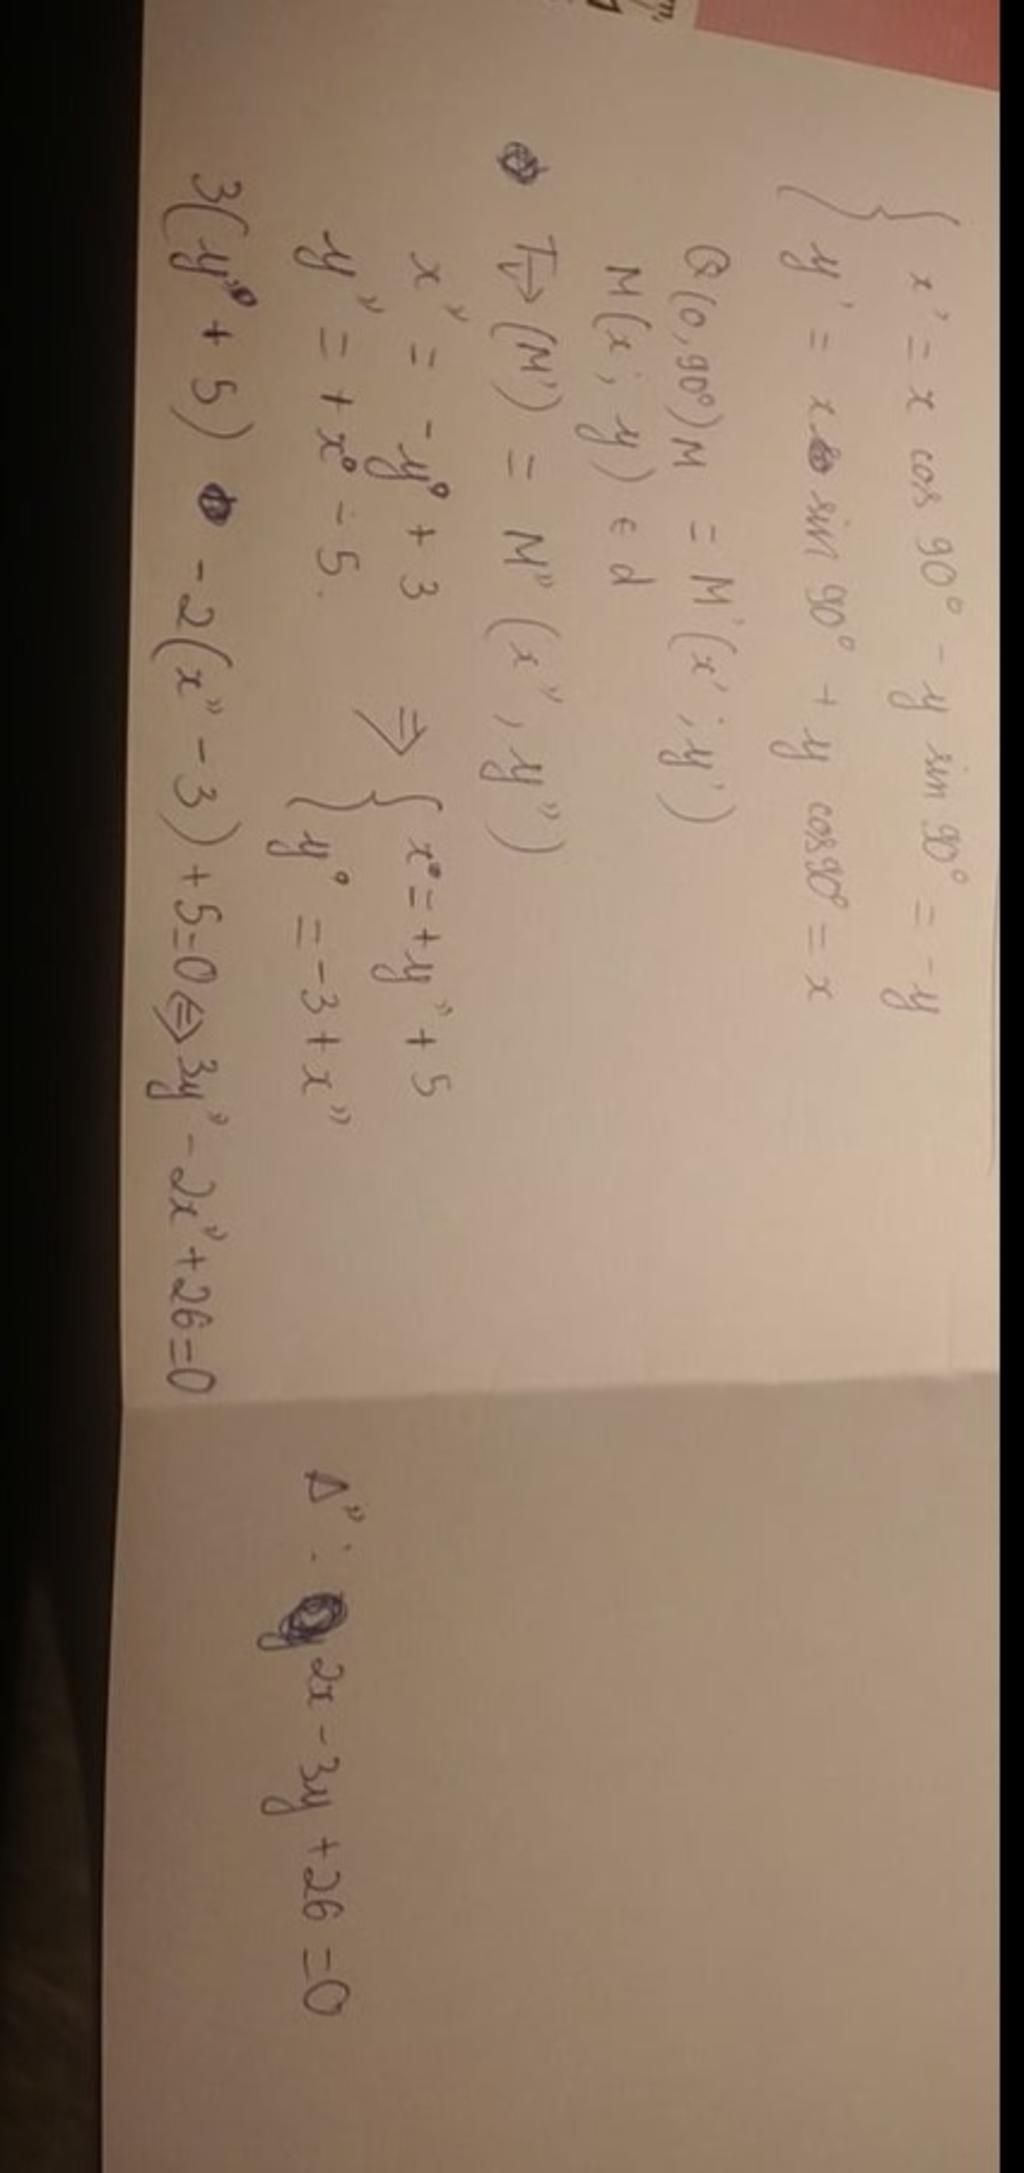 x' = x cos 90° - y sin 90° = -y
y' = x sin 90° + y cos 90° = x
Q(0, 90°) M = M'(x'; y')
M(x; y) ∈ d
T→(M') = M"(x", y")
x" = -y° + 3
y" = + x° - 5.
⇒ { x° = + y" + 5
y° = -3 + x"
3(y" + 5) - 2(x" - 3) + 5 = 0 ⇔ 3y" - 2x" + 26 = 0
Δ" : 2x - 3y + 26 = 0